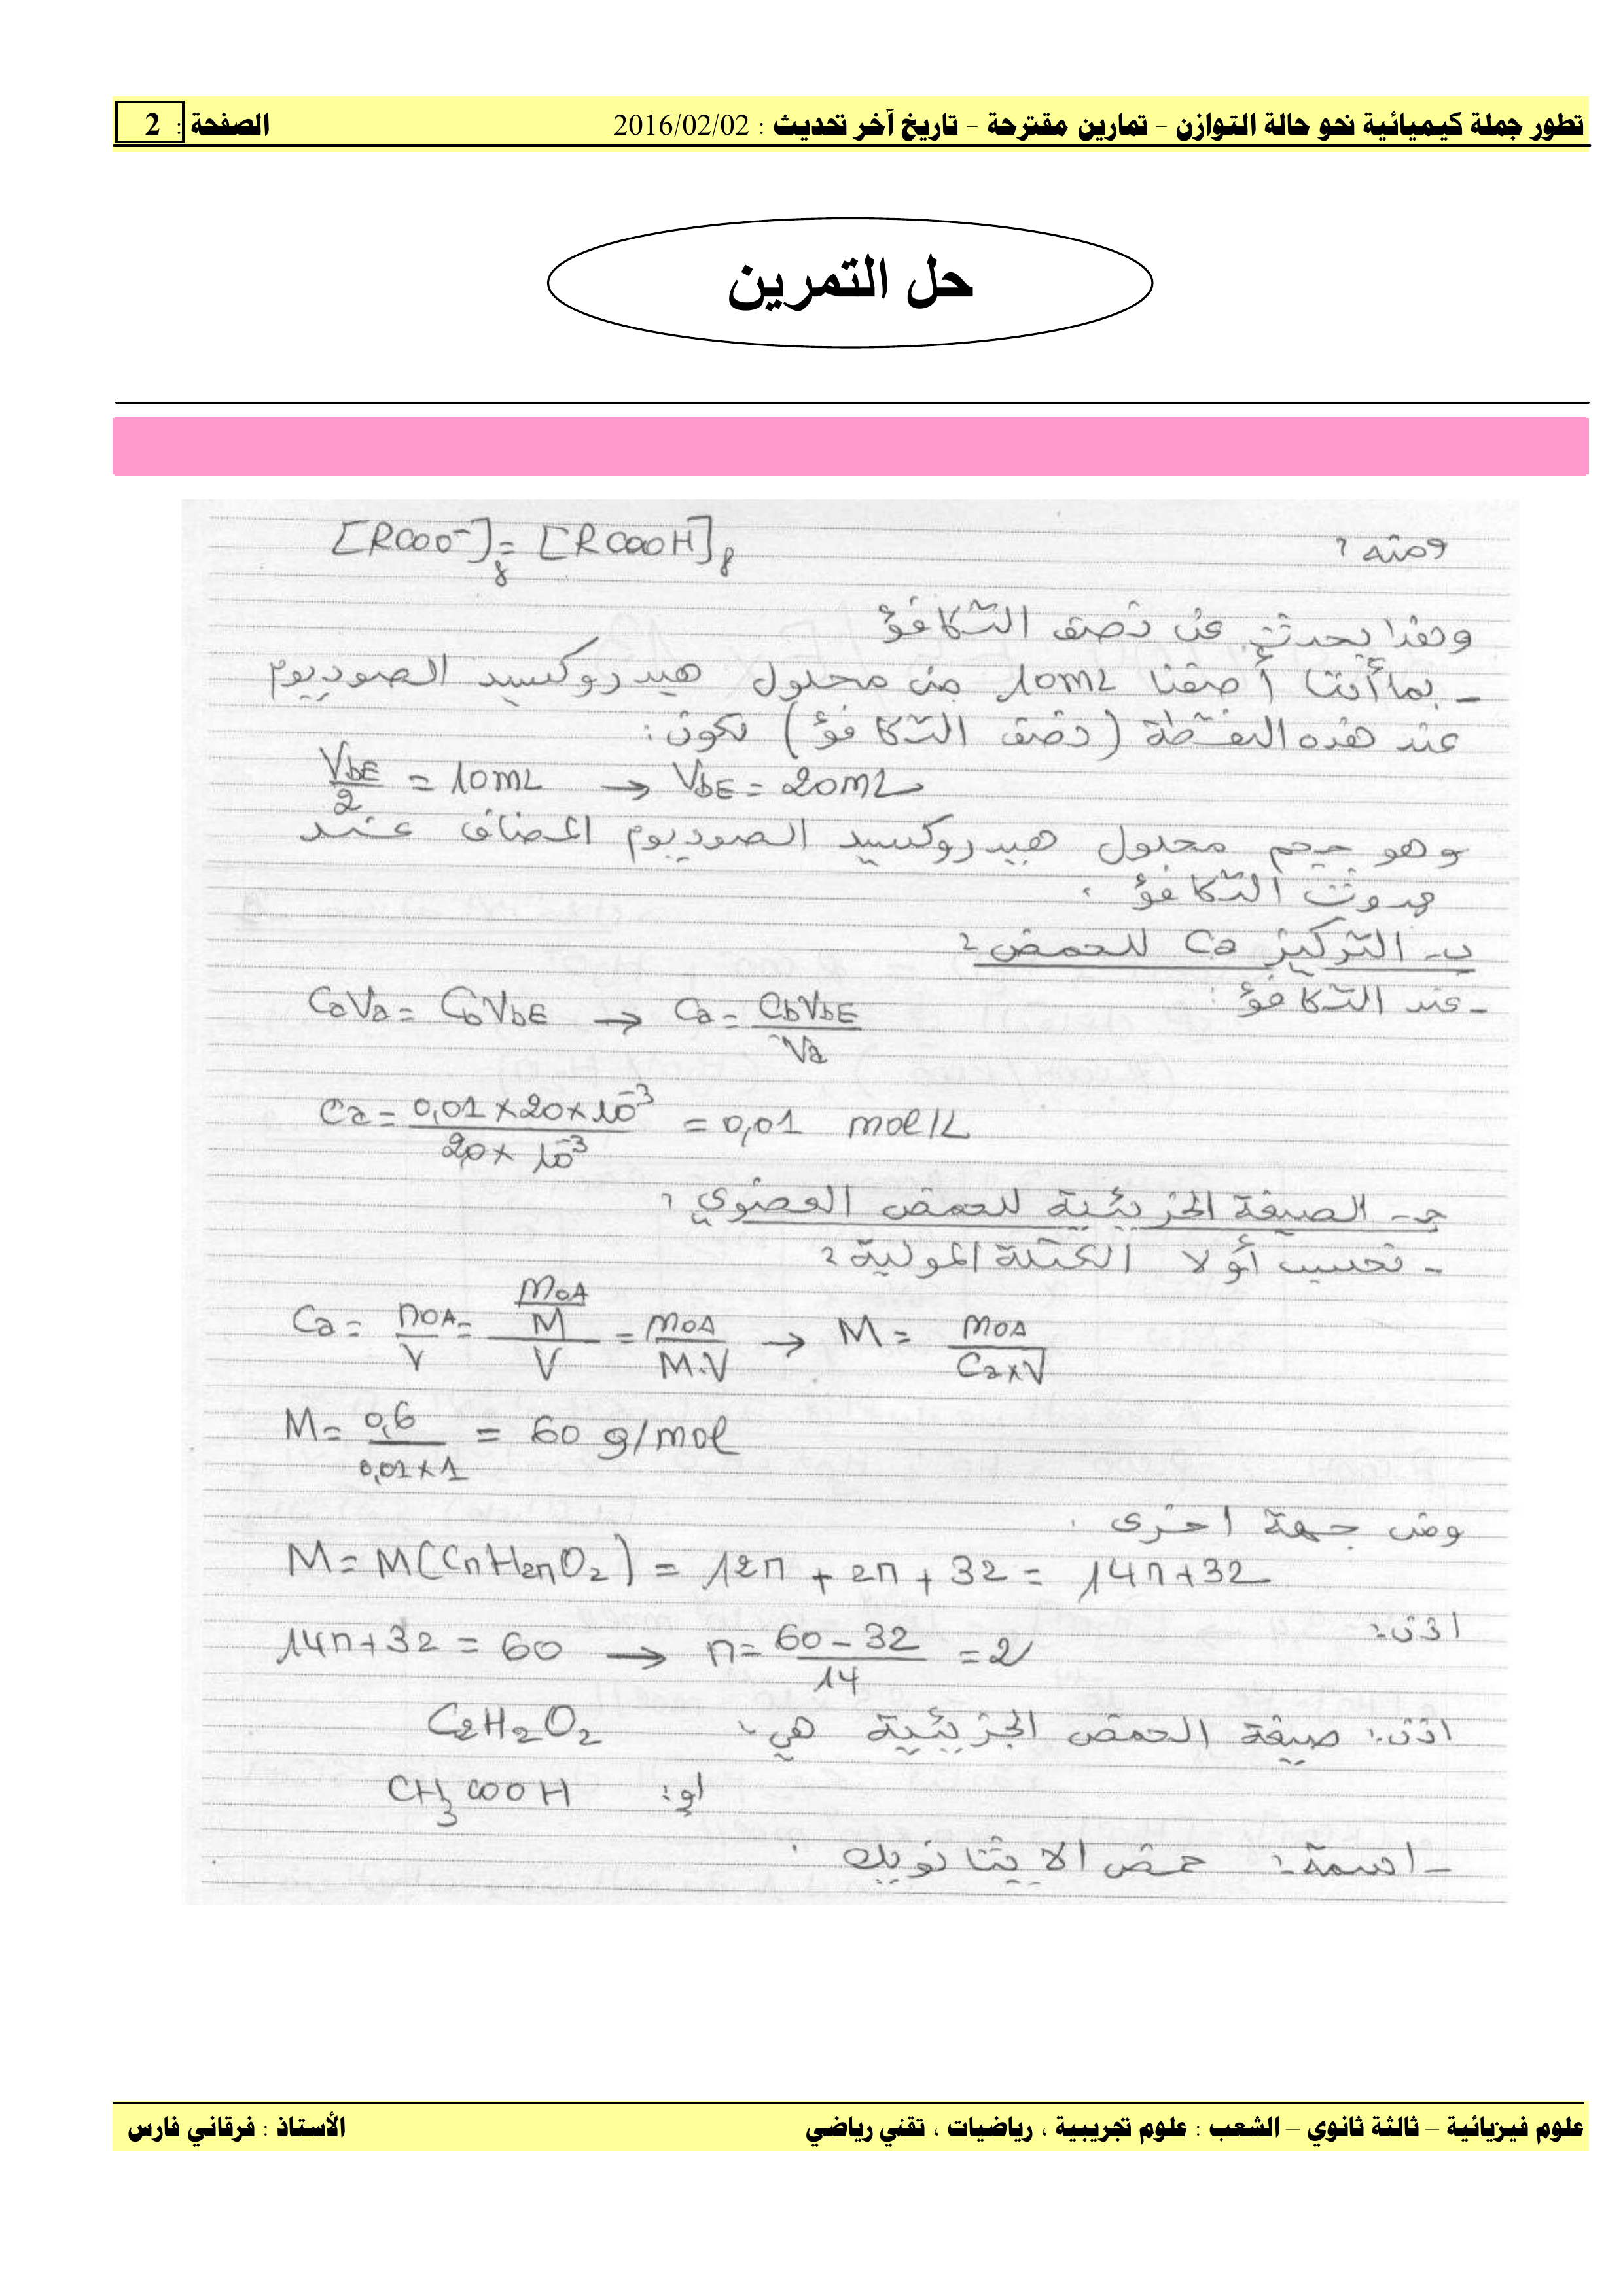 تطور جملة كيميائية نحو حالة التوازن – تمارين مقترحة – تاريخ آخر تحديث : 2016/02/02 الصفحة : 2
حل التمرين
ومنه : [RCOO⁻]f = [RCOOH]f
وهذا يحدث عن نصف التكافؤ
- بما أننا أضفنا 10mL من محلول هيدروكسيد الصوديوم
عند هذه النقطة (نصف التكافؤ) نكون :
VbE/2 = 10mL → VbE = 20mL
وهو حجم محلول هيدروكسيد الصوديوم المضاف عند
حدوث التكافؤ .
ب- التركيز Ca للحمض :
- عند التكافؤ :
CaVa = CbVbE → Ca = CbVbE/Va
Ca = 0,01 × 20 × 10⁻³ / 20 × 10⁻³ = 0,01 mol/L
ج- الصيغة الجزيئية للحمض العضوي :
- نحسب أولا الكتلة المولية :
Ca = n0A/V = (m0A/M)/V = m0A/M.V → M = m0A/Ca×V
M = 0,6/0,01×1 = 60 g/mol
ومن جهة اخرى .
M = M(CnH2nO2) = 12n + 2n + 32 = 14n + 32
اذن :
14n + 32 = 60 → n = 60 – 32/14 = 2
اذن : صيغة الحمض الجزيئية هي : C2H2O2
او : CH3COOH
- اسمه : حمض الايثانويك .
علوم فيزيائية – ثالثة ثانوي – الشعب : علوم تجريبية ، رياضيات ، تقني رياضي الأستاذ : فرقاني فارس